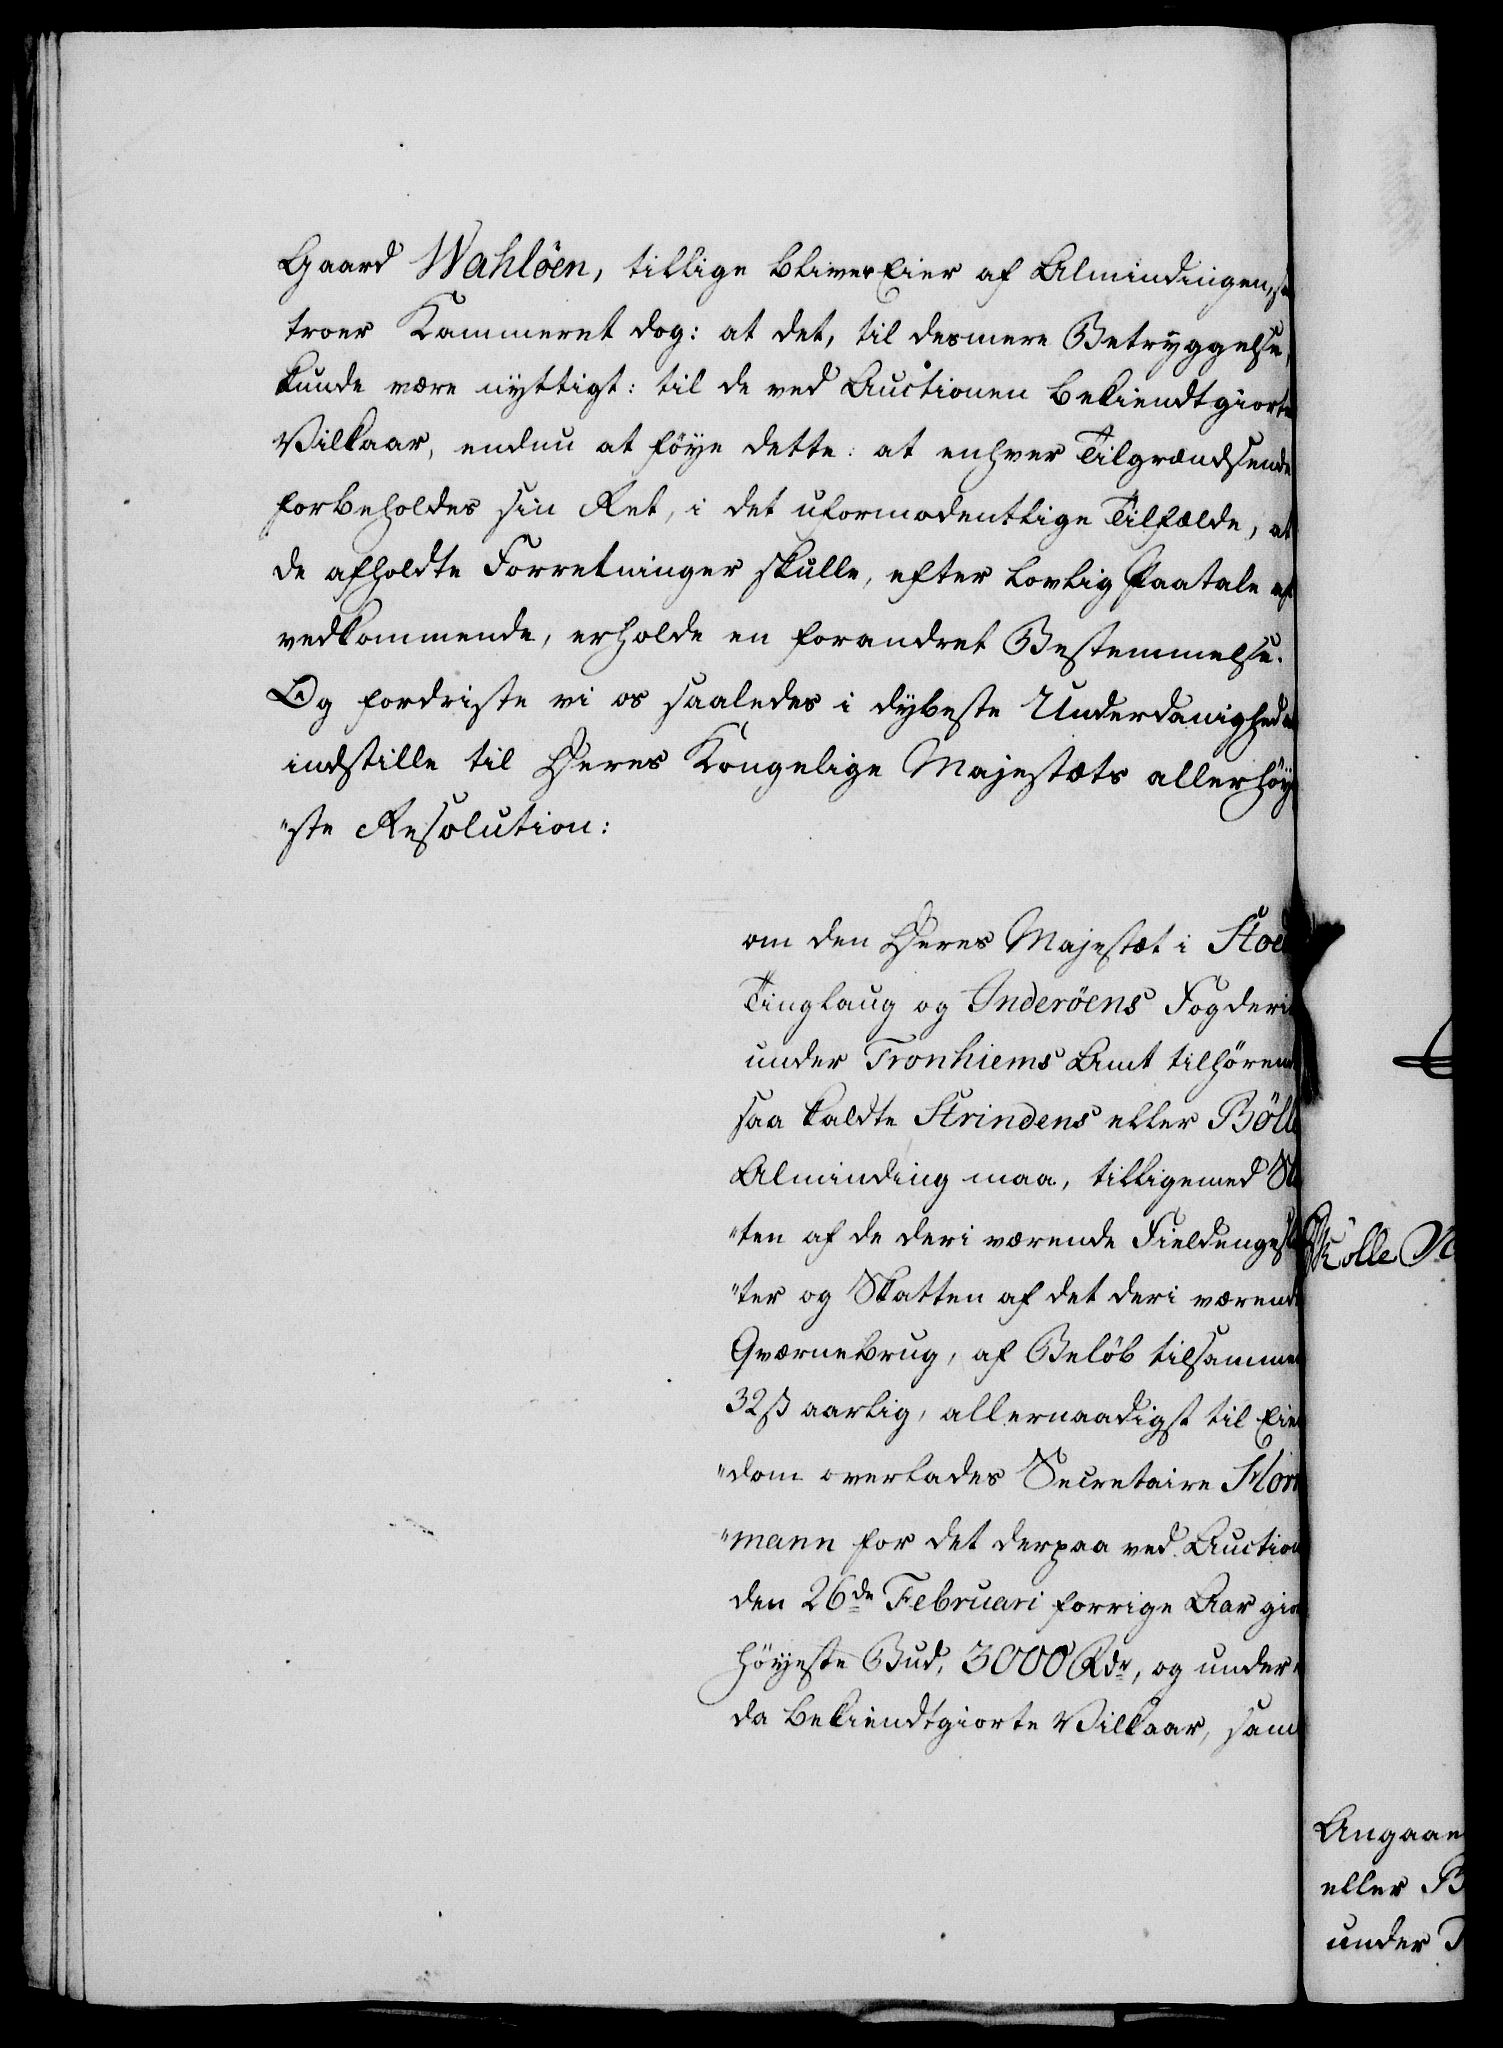 Gaard Wahlöen, tillige bliver Eier af Almindingen,
troer Kammeret dog: at det, til desmere Betryggelse,
kunde være nyttigt: til de ved Auctionen bekiendtgiorte
Vilkaar, endnu at föye dette: at enhver Tilgrændsende
forbeholdes sin Ret, i det uformodentlige Tilfælde, at
de afholdte Forretninger skulle, efter lovlig Paatale af
vedkommende, erholde en forandret Bestemmelse.
Og fordriste vi os saaledes i dybeste Underdanighed
indstille til Deres Kongelige Majestæts allerhöy
"ste Resolution:
om den Deres Majestæt i Stoe
Tinglaug og Inderöens Fogderi
under Tronhiems Amt tilhören
saa kaldte Strindens eller Bölle
Alminding maa, tilligemed
"ten af de deri værende Fieldengeslet
"ter og Skatten af det deri værende
Qværnebrug, af Belöb tilsammen
32 ß aarlig, allernaadigst til Eien
"dom overlades Secretaire Horn
"mann for det derpaa ved Auction
den 26de Februari forrige Aar gior
höyeste Bud, 3000 Rdr, og under
da bekiendtgiorte Vilkaar, sam
Angaaen
eller B
under T